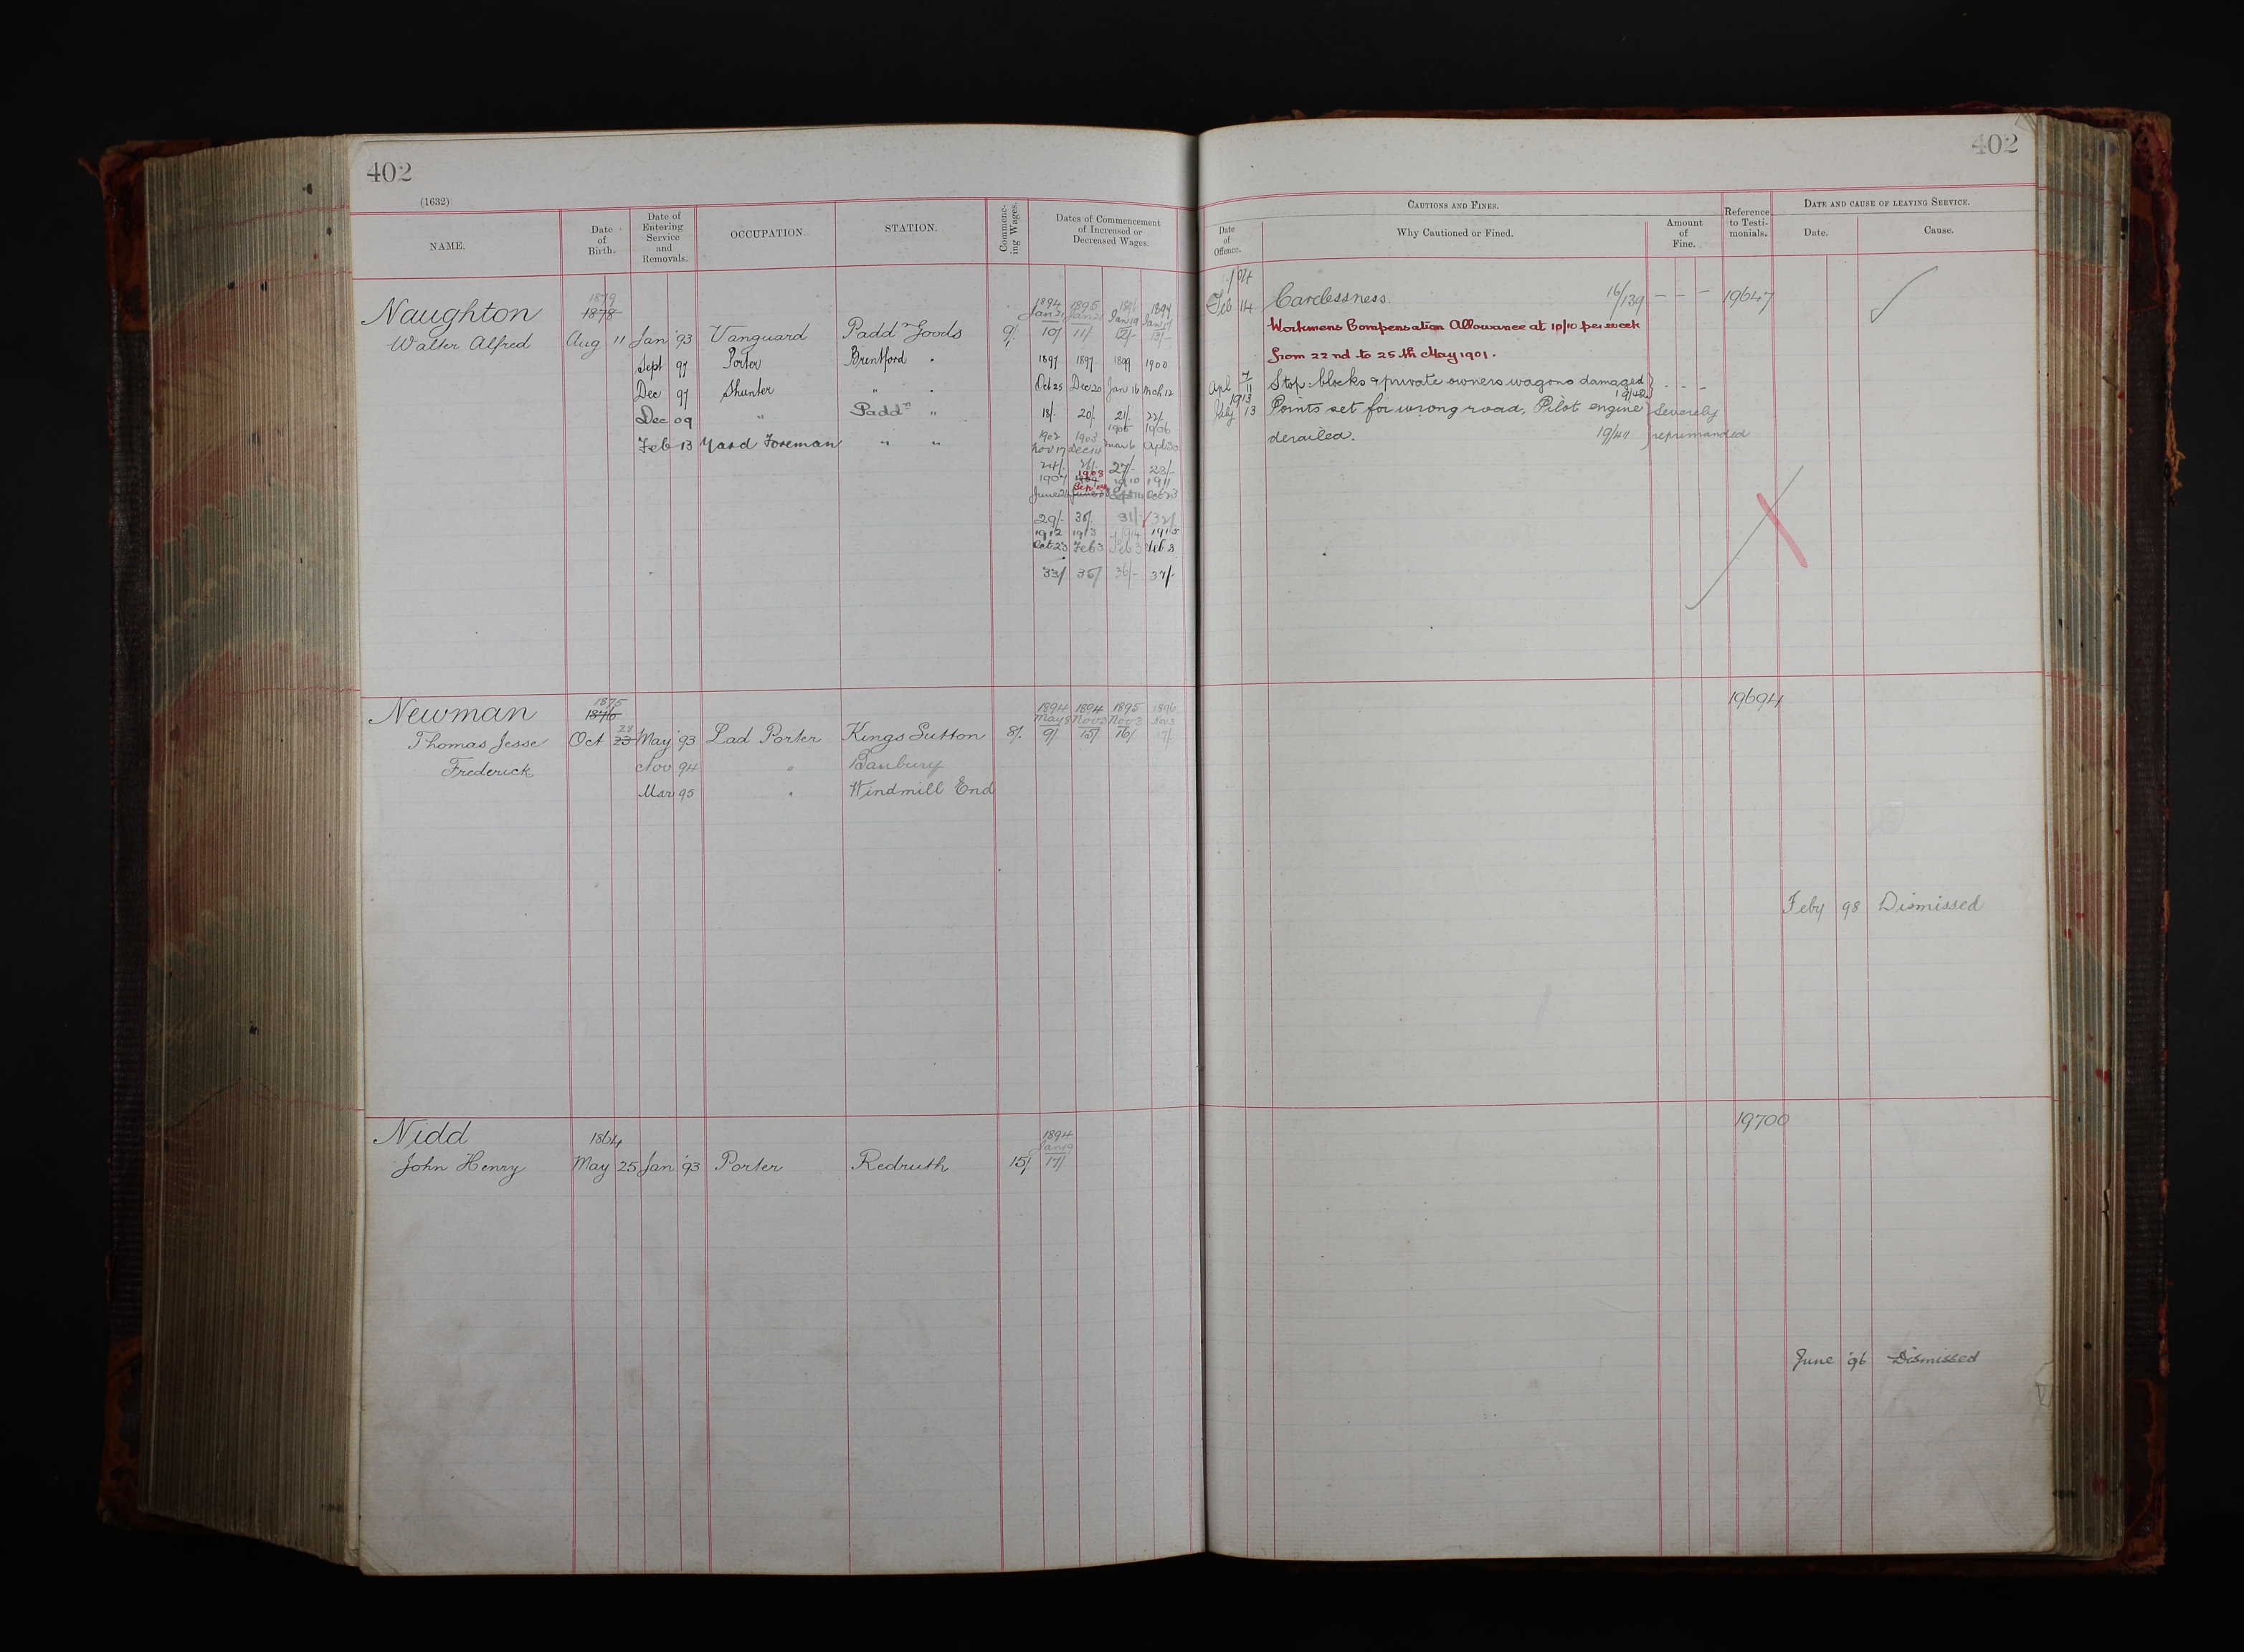 402
402
(1632)
NAME.
Date of Birth.
Date of Entering Service and Removals.
OCCUPATION.
STATION.
Commenc-ing Wages.
Dates of Commencement of Increased or Decreased Wages.
CAUTIONS AND FINES.
Date of Offence.
Why Cautioned or Fined.
Amount of Fine.
Reference to Testi-monials.
DATE AND CAUSE OF LEAVING SERVICE.
Date.
Cause.
Naughton 1879
1878
Walter Alfred Aug 11 Jan '93 Vanguard Paddn Goods 9/-
Sept 97 Porter Brentford "
Dec 97 Shunter " "
Dec 09 " Paddn "
Feb 13 Yard Foreman " "
1894 1895 1896 1897
Jan 21 Jan 21 Jan 19 Jan
10/ 11/ 12/- 13/-
1897 1897 1899 1900
Oct 25 Dec 20 Jan 16 Mch 12
18/- 20/- 21/- 22/-
1902 1903 1905 1906
Nov 17 Dec 14 Mar 6 Apl 30
24/- 26/- 27/- 28/-
1907 1908 1910 1911
June Sep Oct 23
29/- 30/- 31/- 32/-
1912 1913 1914 1915
Oct 23 Feb 3 Feb 3 Feb 3
33/ 35/ 36/- 37/-
Feb 14 Carelessness. 16/139 – – – 19647
Workmens Compensation Allowance at 10/10 per week
from 22nd to 25th May 1901.
Apl 7 11 Stop-blocks & private owners wagons damaged - - -
1913
13 Points set for wrong road, Pilot engine Severely
derailed. 19/41 reprimanded
Newman 1875
1876
Thomas Jesse Oct 23 May '93 Lad Porter Kings Sutton 8/-
Frederick Nov 94 " Banbury
Mar 95 " Windmill End
1894 1894 1895 1896
May 8 Nov 3 Nov 3 Nov 3
9/ 15/ 16/ 17/
19694
Feby 98 Dismissed
Nidd 1864
John Henry May 25 Jan '93 Porter Redruth 15/
1894
Jan 19
17/
19700
June '96 Dismissed